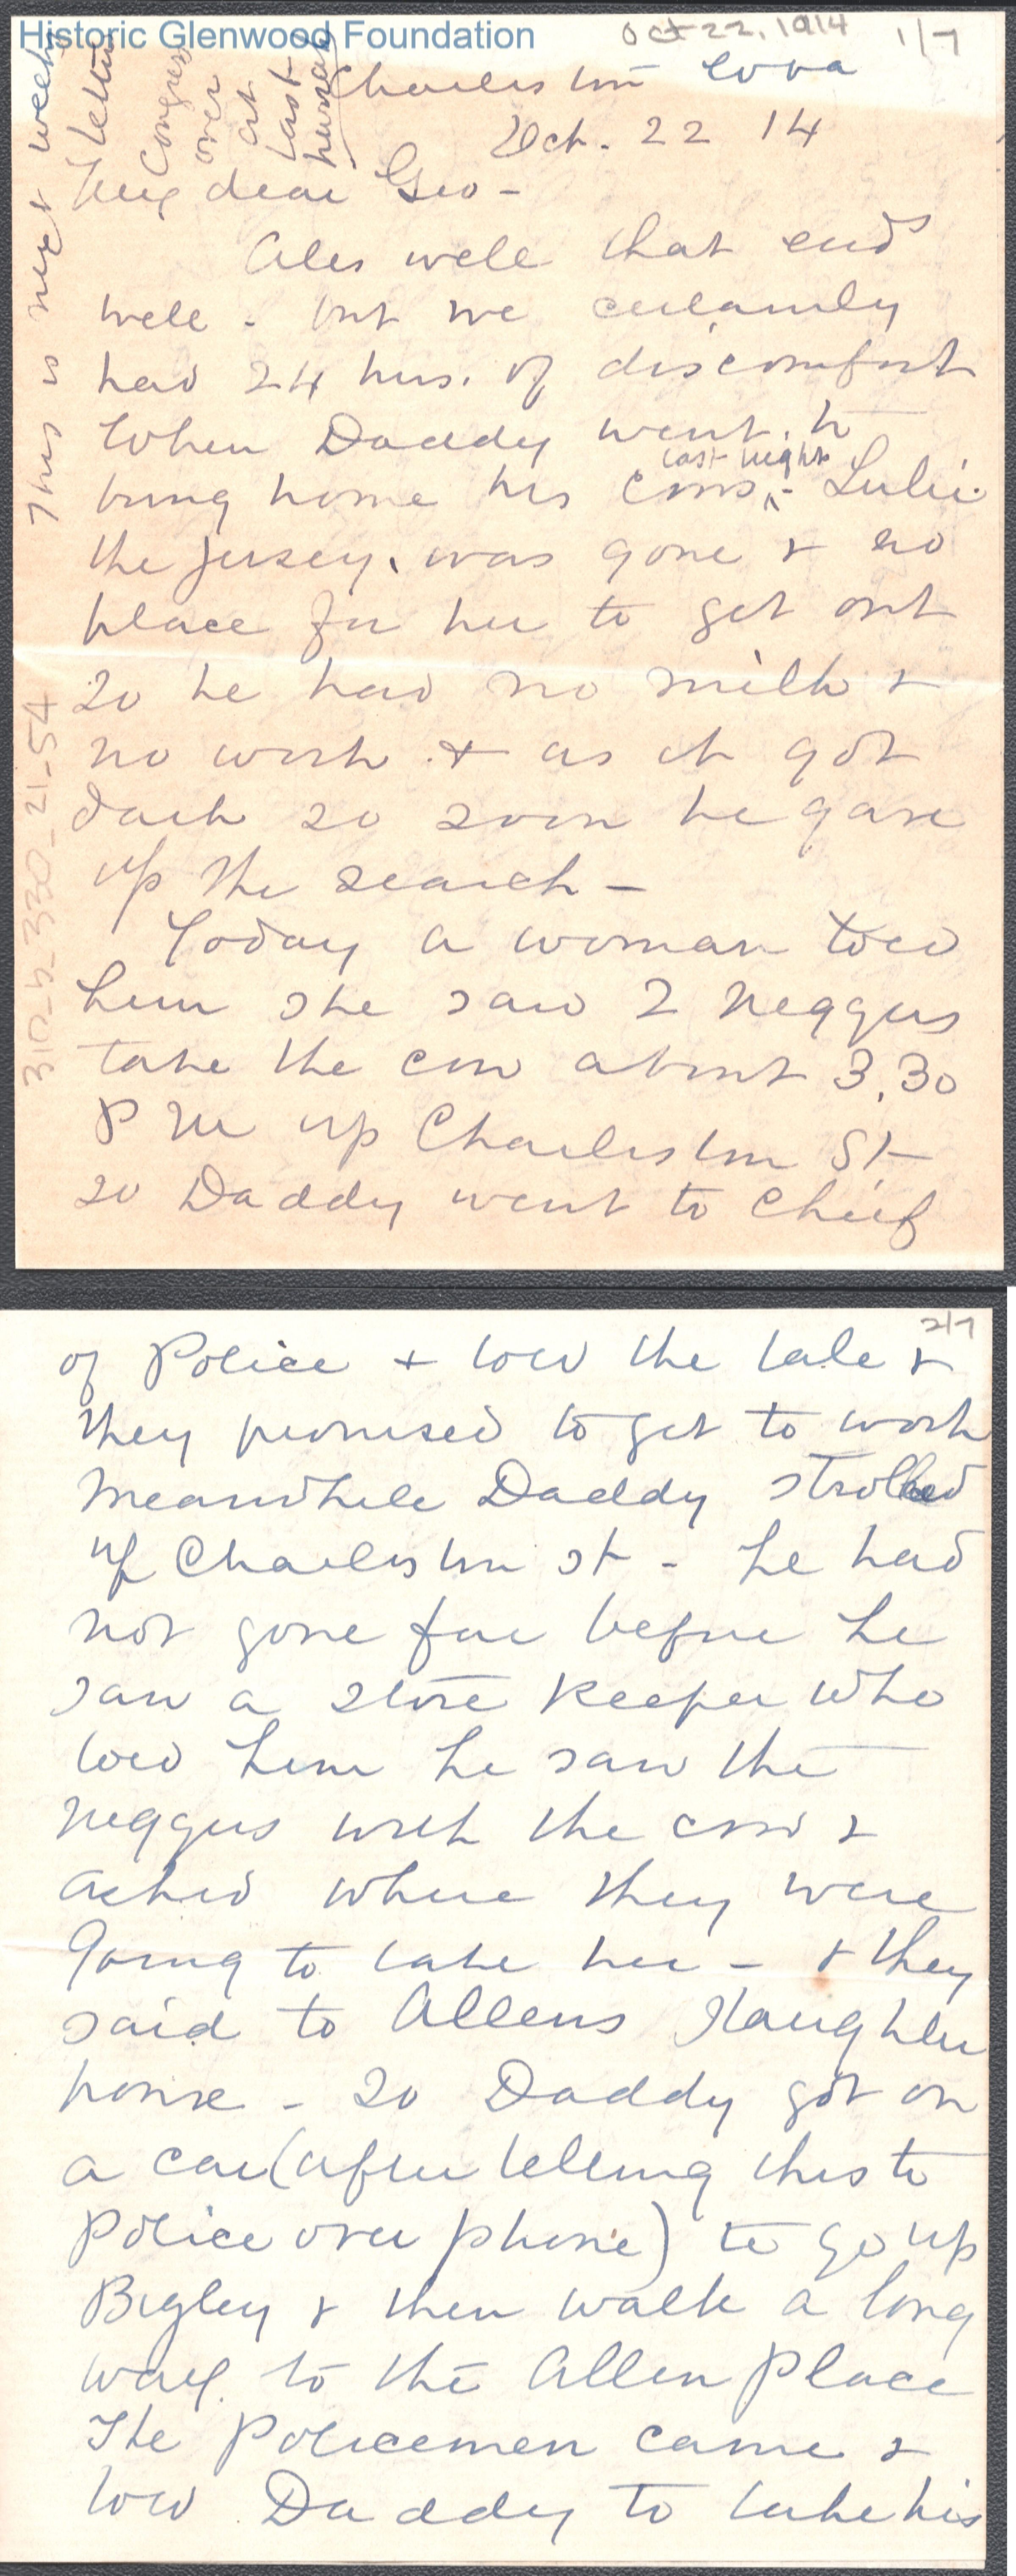 Historic Glenwood Foundation
Oct 22, 1914 1/7
This is next weeks letter
Congress over at last hurrah
Charleston WVa
Oct. 22 14
My dear Geo -
Alls well that ends
well - but we certainly
had 24 hrs. of discomfort
When Daddy went to
bring home his cows, last night - Lulie
the Jersey, was gone & no
place for her to get out
so he had no milk &
no work & as it got
dark so soon he gave
up the search -
Today a woman told
him she saw 2 neggers
take the cow about 3.30
P M up Charleston St
so Daddy went to Chief
310_b_330_21_54
2/7
of Police & told the tale &
they promised to get to work
Meanwhile Daddy strolled
up Charleston st - he had
not gone far before he
saw a store keeper who
told him he saw the
neggers with the cow &
asked where they were
going to take her - & they
said to Allens slaughter
house - so Daddy got on
a car (after telling this to
Police over phone) to go up
Bigley & then walk a long
way to the Allen Place
The Policemen came &
told Daddy to take his